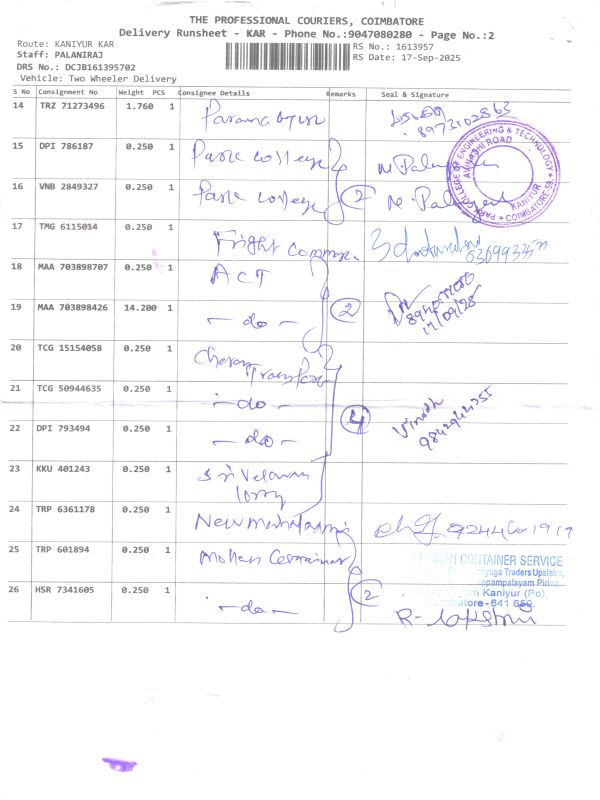 THE PROFESSIONAL COURIERS, COIMBATORE
Delivery Runsheet - KAR - Phone No.:9047080280 - Page No.:2
Route: KANIYUR KAR
RS No.: 1613957
Staff: PALANIRAJ
RS Date: 17-Sep-2025
DRS No.: DCJB161395702
Vehicle: Two Wheeler Delivery
S No Consignment No Weight PCS Consignee Details Remarks Seal & Signature
14 TRZ 71273496 1.760 1
15 DPI 786187 0.250 1 Park college
16 VNB 2849327 0.250 1 Park college 2
PARK COLLEGE OF ENGINEERING & TECHNOLOGY
AVINASHI ROAD
KANIYUR
COIMBATORE
17 TMG 6115014 0.250 1 Fright
18 MAA 703898707 0.250 1 ACT
19 MAA 703898426 14.200 1 - do - 2
17/09/25
20 TCG 15154058 0.250 1 Cheran Transport
21 TCG 50944635 0.250 1 - do - 4
Vinoth
22 DPI 793494 0.250 1 - do -
9842944355
23 KKU 401243 0.250 1 Sri Velavan
lorry
24 TRP 6361178 0.250 1
25 TRP 601894 0.250 1 Mohan Container
CONTAINER SERVICE
Traders Upstairs,
26 HSR 7341605 0.250 1 - do - 2
Kaniyur (Po),
641 659.
R-